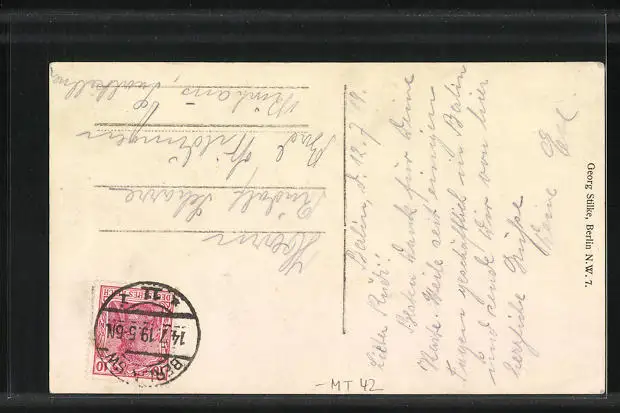 Berlin, d. 12.7.19.
Lieber Rudi!
Besten Dank für Deine
Karte. Weile seit einigen
Tagen geschäftlich in Berlin
und sende Dir von hier
herzliche Grüße
Deine
Herrn
Rudolf
Bad Wildungen
Georg Stilke, Berlin N.W. 7.
DEUTSCHES REICH
10
BERLIN SW
14.7.19.5-6N.
* 11
MT 42